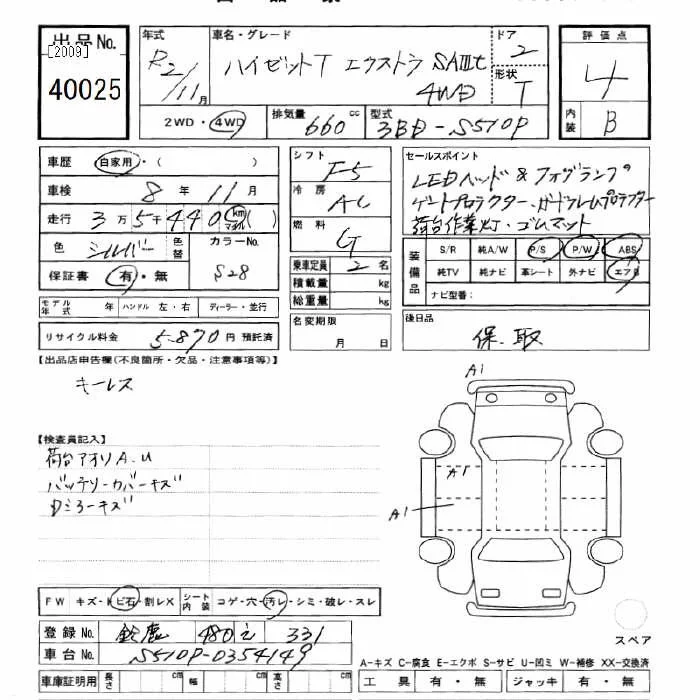 出品No.
[2009]
40025
年式 R2/11月
車名・グレード ハイゼットT エクストラ SAⅢt 4WD
ドア 2
形状 T
評価点 4
内装 B
2WD・4WD
排気量 660 cc
型式 3BD-S510P
車歴 自家用・( )
車検 8年 11月
走行 3万5千440 km マイル ( )
色 シルバー 色替
カラーNo. S28
保証書 有・無
モデル年式 年 ハンドル 左・右 ディーラー・並行
リサイクル料金 5,870円 預託済
シフト F5
冷房 AC
燃料 G
乗車定員 2名
積載量 kg
総重量 kg
名変期限 月 日
セールスポイント
LEDヘッド&フォグランプ
ゲートプロテクター・ガードフレームプロテクター
荷台作業灯・ゴムマット
装備品
S/R 純A/W P/S P/W ABS
純TV 純ナビ 革シート 外ナビ エアB
ナビ型番:
後日品 保、取
【出品店申告欄(不良箇所・欠品・注意事項等)】
キーレス
【検査員記入】
荷台アオリA.U
バッテリーカバーキズ
Dミラーキズ
A1
A1
A1
FW キズ・ヒビ石・割レX シート内装 コゲ・穴・汚レ・シミ・破レ・スレ
登録No. 鈴鹿 480 え 331
車台No. S510P-0354149
車庫証明用 長さ cm 幅 cm 高さ cm
スペア
A-キズ C-腐食 E-エクボ S-サビ U-凹ミ W-補修 XX-交換済
工具 有・無 ジャッキ 有・無